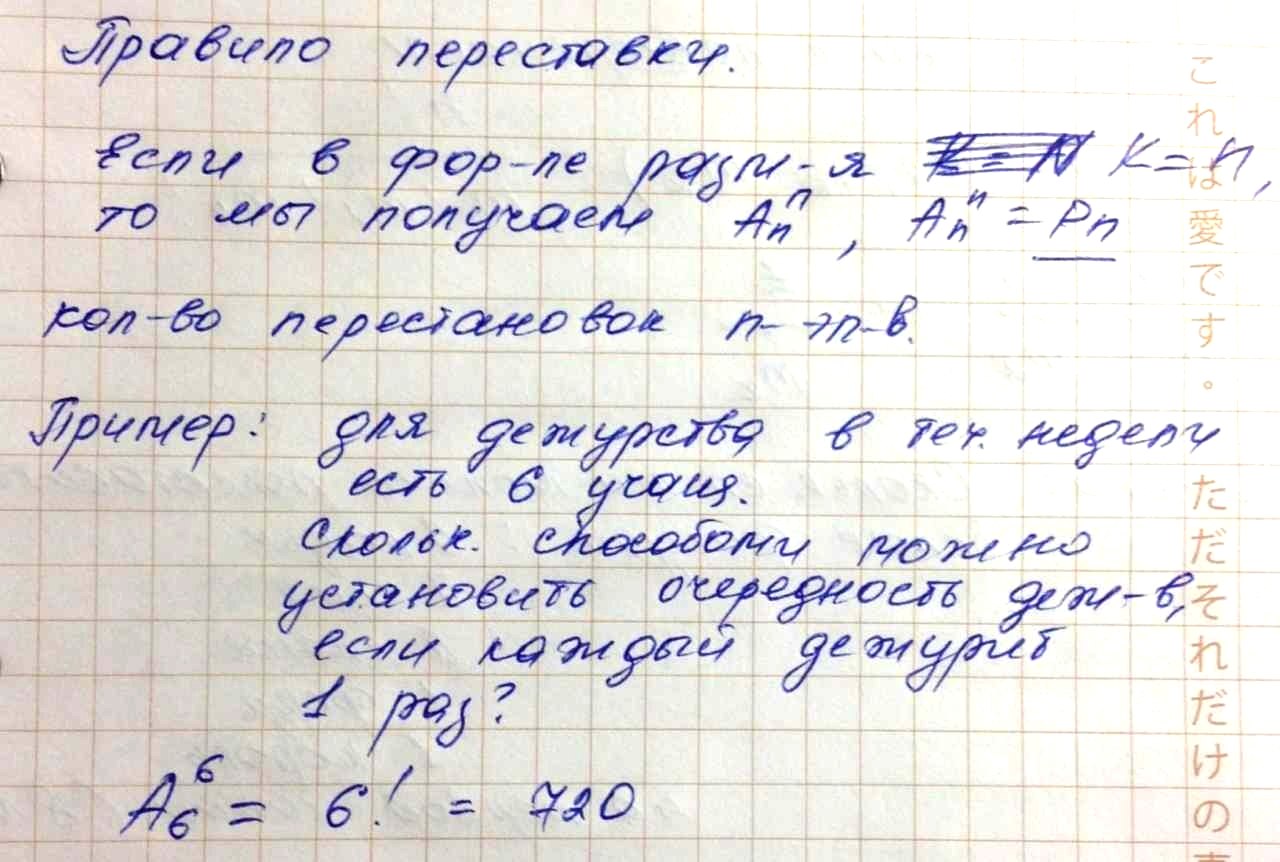 Правило переставки.
Если в фор-ле разм-я K = n,
то мы получаем Aₙⁿ, Aₙⁿ = Pₙ
кол-во перестановок n-эл-в.
Пример: для дежурства в теч. недели
есть 6 учащ.
Скольк. способами можно
установить очередность деж-в,
если каждый дежурит
1 раз?
A₆⁶ = 6! = 720
これは愛です。
ただそれだけの